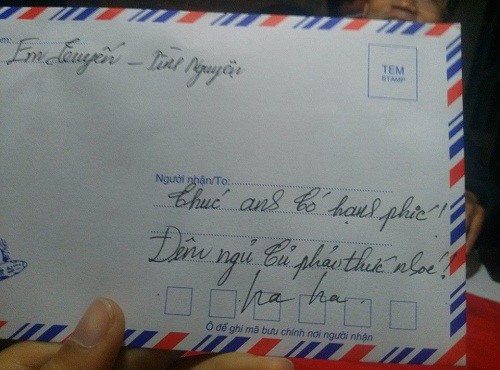 Em Tuyến – Tình Nguyện
TEM
STAMP
Người nhận/To:
Chúc anh Cố hạnh phúc!
Đêm ngủ Cứ phải thức nhoé!!
ha ha
Ô để ghi mã bưu chính nơi người nhận